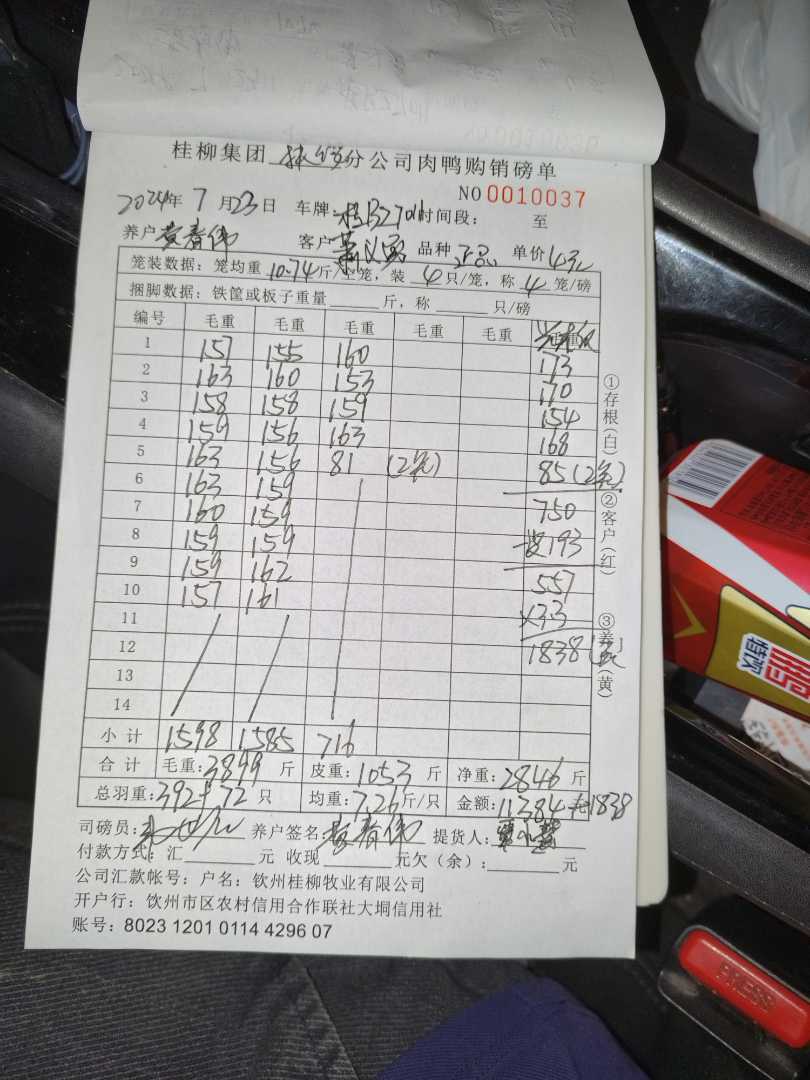 桂柳集团 分公司肉鸭购销磅单
NO 0010037
2024年 7 月 23 日 车牌: 桂B 时间段: 至
养户 黄春伟 客户 萧义 品种 正品 单价 4元
笼装数据: 笼均重 10.74 斤/笼, 装 4 只/笼, 称 4 笼/磅
捆脚数据: 铁筐或板子重量 斤, 称 只/磅
编号 毛重 毛重 毛重 毛重 毛重
1 157 155 160 173
2 163 160 153 170
3 158 158 159 154
4 159 156 163 168
5 163 156 81 (2笼) 85 (2笼)
6 163 159 750
7 160 159 皮193
8 159 159 557
9 159 162 ×3.3
10 157 161 1838
11
12
13
14
小计 1598 1585 716
合计 毛重: 3899 斤 皮重: 1053 斤 净重: 2846 斤
总羽重: 392+72 只 均重: 7.26 斤/只 金额: 11384 1838
司磅员: 养户签名: 黄春伟 提货人:
付款方式: 汇 元 收现 元欠(余): 元
公司汇款帐号: 户名: 钦州桂柳牧业有限公司
开户行: 钦州市区农村信用合作联社大垌信用社
账号: 8023 1201 0114 4296 07
①存根(白)
②客户(红)
③养 (黄)
PRESS